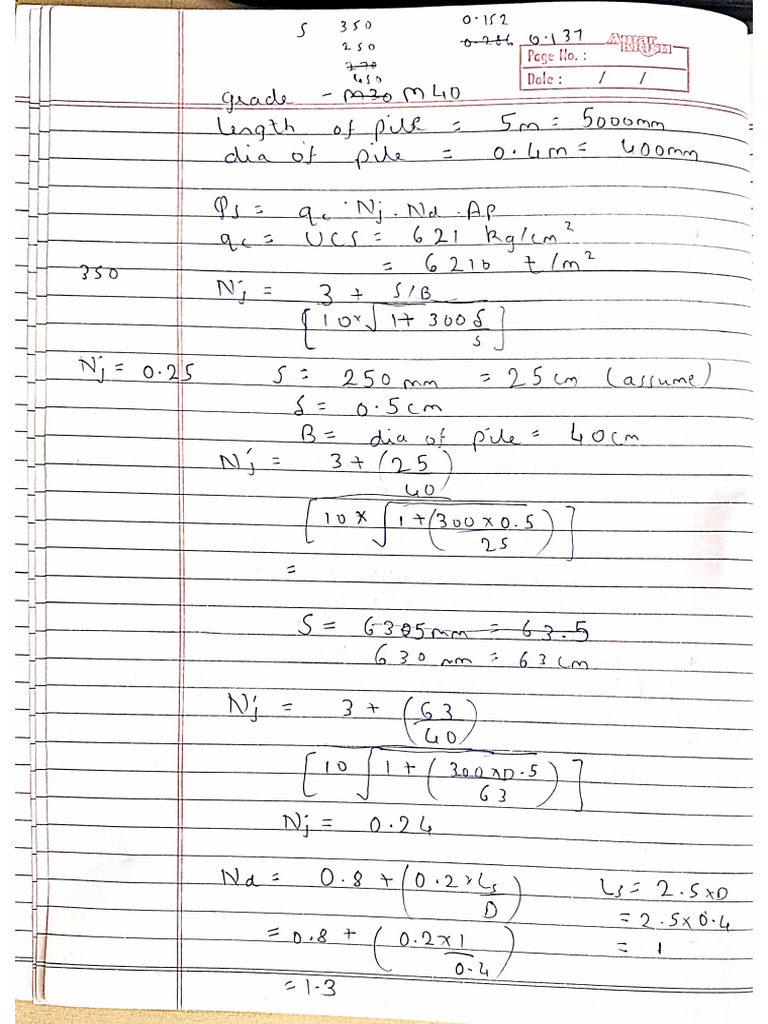 S 350 0.152
250 0.286 0.137
770
450
Page No. :
Date : / /
grade - M30 M40
length of pile = 5m = 5000mm
dia of pile = 0.4m = 400mm
Qs = qc . Nj . Nd . AP
qc = UCS = 621 kg/cm2
= 6210 t/m2
350
Nj = 3 + S/B
[10×√1+ 300 δ/s]
Nj = 0.25 S = 250 mm = 25 cm (assume)
δ = 0.5 cm
B = dia of pile = 40cm
Nj = 3 + (25/40)
[10 × √1+(300×0.5/25)]
=
S = 6305mm = 63.5
630 mm = 63cm
Nj = 3 + (63/40)
[10 √1+ (300×0.5/63)]
Nj = 0.24
Nd = 0.8 + (0.2×Ls/D) Ls = 2.5×D
= 2.5×0.4
= 0.8 + (0.2×1/0.4) = 1
= 1.3